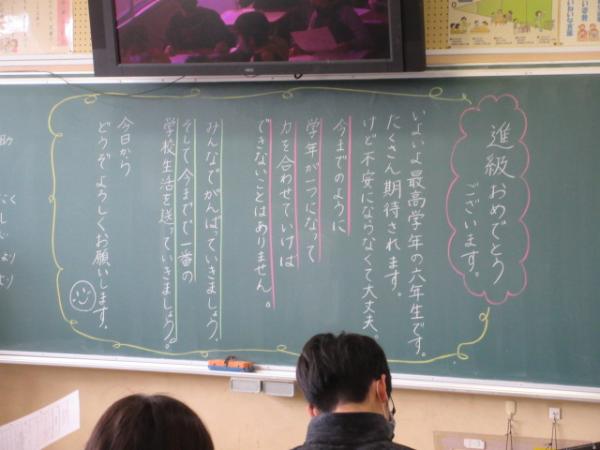 進級おめでとう
ございます。
いよいよ最高学年の六年生です。
たくさん期待されます。
けど不安にならなくて大丈夫、
今までのように
学年が一つになって
力を合わせていけば
できないことはありません。
みんなでがんばっていきましょう。
そして今までで一番の
学校生活を送っていきましょう。
今日から
どうぞよろしくお願いします。